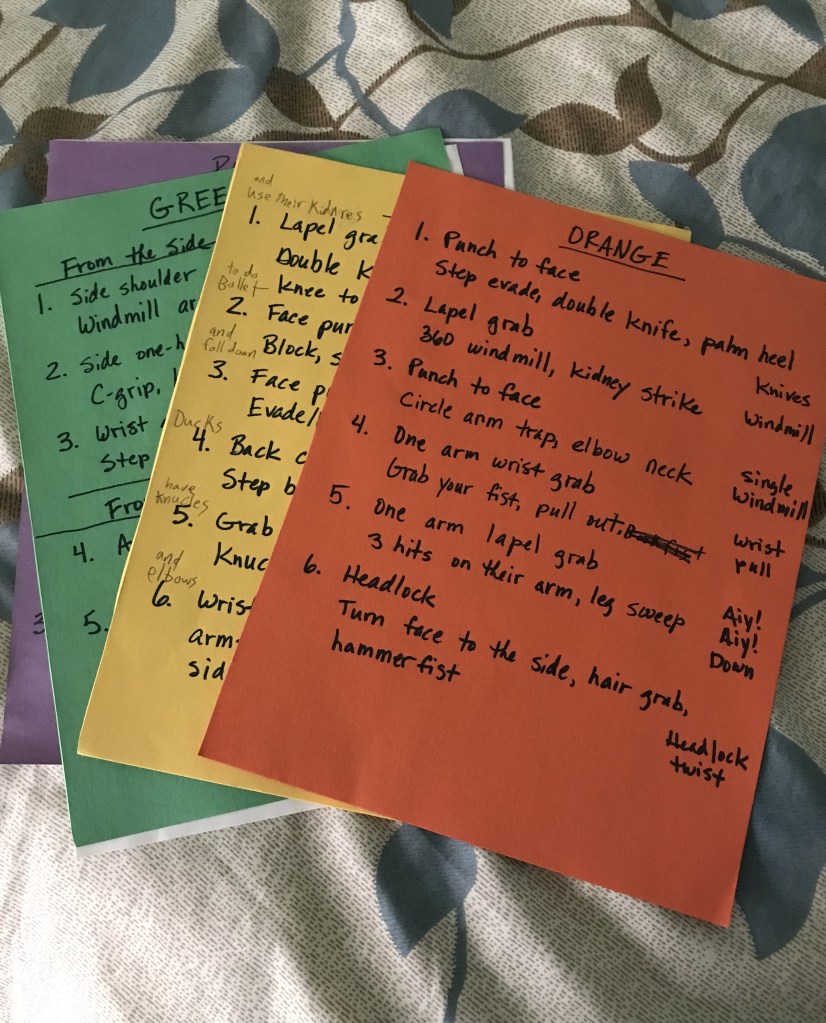 GREE
From the Side
1. Side shoulder
Windmill ar
2. Side one-h
C-grip,
3. Wrist
Step
Fro
4. A
5.
3
and
use their Kidnires
1. Lapel gra
Double K
to do
Ballet
Knee to
2. Face pun
and
fall down
Block, s
3. Face p
Evade/
Ducks
4. Back c
Step b
have
knuckles
5. Grab
Knuc
and
elbows
6. Wris
arm-
sid
ORANGE
1. Punch to face
Step evade, double knife, palm heel
Knives
2. Lapel grab
360 windmill, kidney strike
Windmill
3. Punch to face
Circle arm trap, elbow neck
single
Windmill
4. One arm wrist grab
Grab your fist, pull out,
wrist
pull
5. One arm lapel grab
3 hits on their arm, leg sweep
Aiy!
Aiy!
Down
6. Headlock
Turn face to the side, hair grab,
hammerfist
Headlock
twist